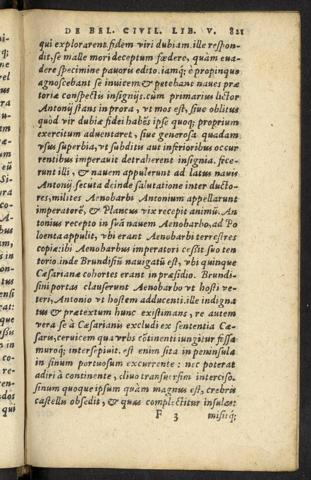 DE BEL. CIVIL. LIB. V. 821
qui explorarent fidem viri dubiam. ille respon-
dit, se malle mori deceptum fœdere, quàm eua-
dere specimine pauoris edito. iamq́; è propinquo
agnoscebant se inuicem & petebant naues præ
toriæ conspectis insignijs. cùm primarius lictor
Antonij stans in prora, vt mos est, siue oblitus
quòd vir dubiæ fidei habẽs ipse quoq; proprium
exercitum aduentaret, siue generosa quadam
vsus superbia, vt subditis aut inferioribus occur
rentibus imperauit detraherent insignia. fece-
runt illi, & nauem appulerunt ad latus nauis
Antonij secuta deinde salutatione inter ducto-
res, milites Aenobarbi Antonium appellarunt
imperatorẽ, & Plancus vix recepit animũ. An
tonius recepto in suã nauem Aenobarbo, ad Pa
loenta appulit, vbi erant Aenobarbi terrestres
copiæ: ibi Aenobarbus imperatori cessit suo ten
torio. inde Brundisiũ nauigatũ est, vbi quinque
Cæsarianæ cohortes erant in præsidio. Brundi-
sini portas clauserunt Aenobarbo vt hosti ve-
teri, Antonio vt hostem adducenti. ille indigna
tus & prætextum hunc existimans, re autem
vera se à Cæsarianis excludi ex sententia Cæ-
saris, ceruicem qua vrbs cõtinenti iungitur fossa
muroq; intersepiuit. est enim sita in peninsula
in sinum portuosum excurrente: nec poterat
adiri à continente, cliuo transuersim interciso.
sinum quoque ipsum quàm magnus est, crebris
castellis obsedit, & quas complectitur insulas:
F 3 misitq́;